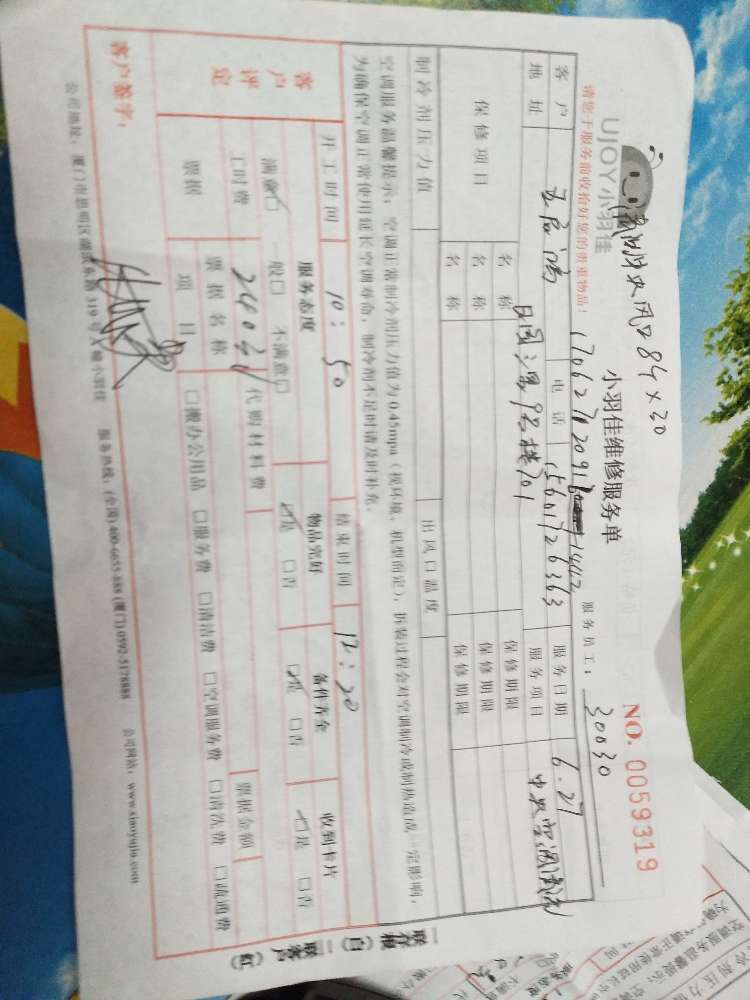 清洗中央风口84×20
请您于服务前收拾好您的贵重物品！
UJOY小羽佳
小羽佳维修服务单
NO. 0059319
服务员工： 30030
客户
电话 15601726363
服务日期 6.27
地址
9号楼701
服务项目 中央空调清洗
保修项目
名称 保修期限
名称 保修期限
名称 保修期限
制冷剂压力值 出风口温度
空调服务温馨提示：空调正常制冷剂压力值为0.45mpa（视环境、机型而定），拆装过程会对空调制冷或制热造成一定影响，
为确保空调正常使用延长空调寿命，制冷剂不足时请及时补充。
开工时间 10：50 结束时间 12：20
客户评定
服务态度 物品完好 备件齐全 收到卡片
满意□ 一般□ 不满意□ 是 □否 是 □否 是 □否
工时费 240元 代购材料费
票据 票据名称 票据金额
项目 □搬办公用品 □服务费 □清洁费 □空调服务费 □清洗费 □疏通费
客户签字：
公司地址：厦门市思明区湖滨东路319号 小羽佳 服务热线：(全国) 400-6655-888 (厦门) 0592-5178888 公司网站：www.xiaoyujia.com
一联存根（白） 二联客户（红）